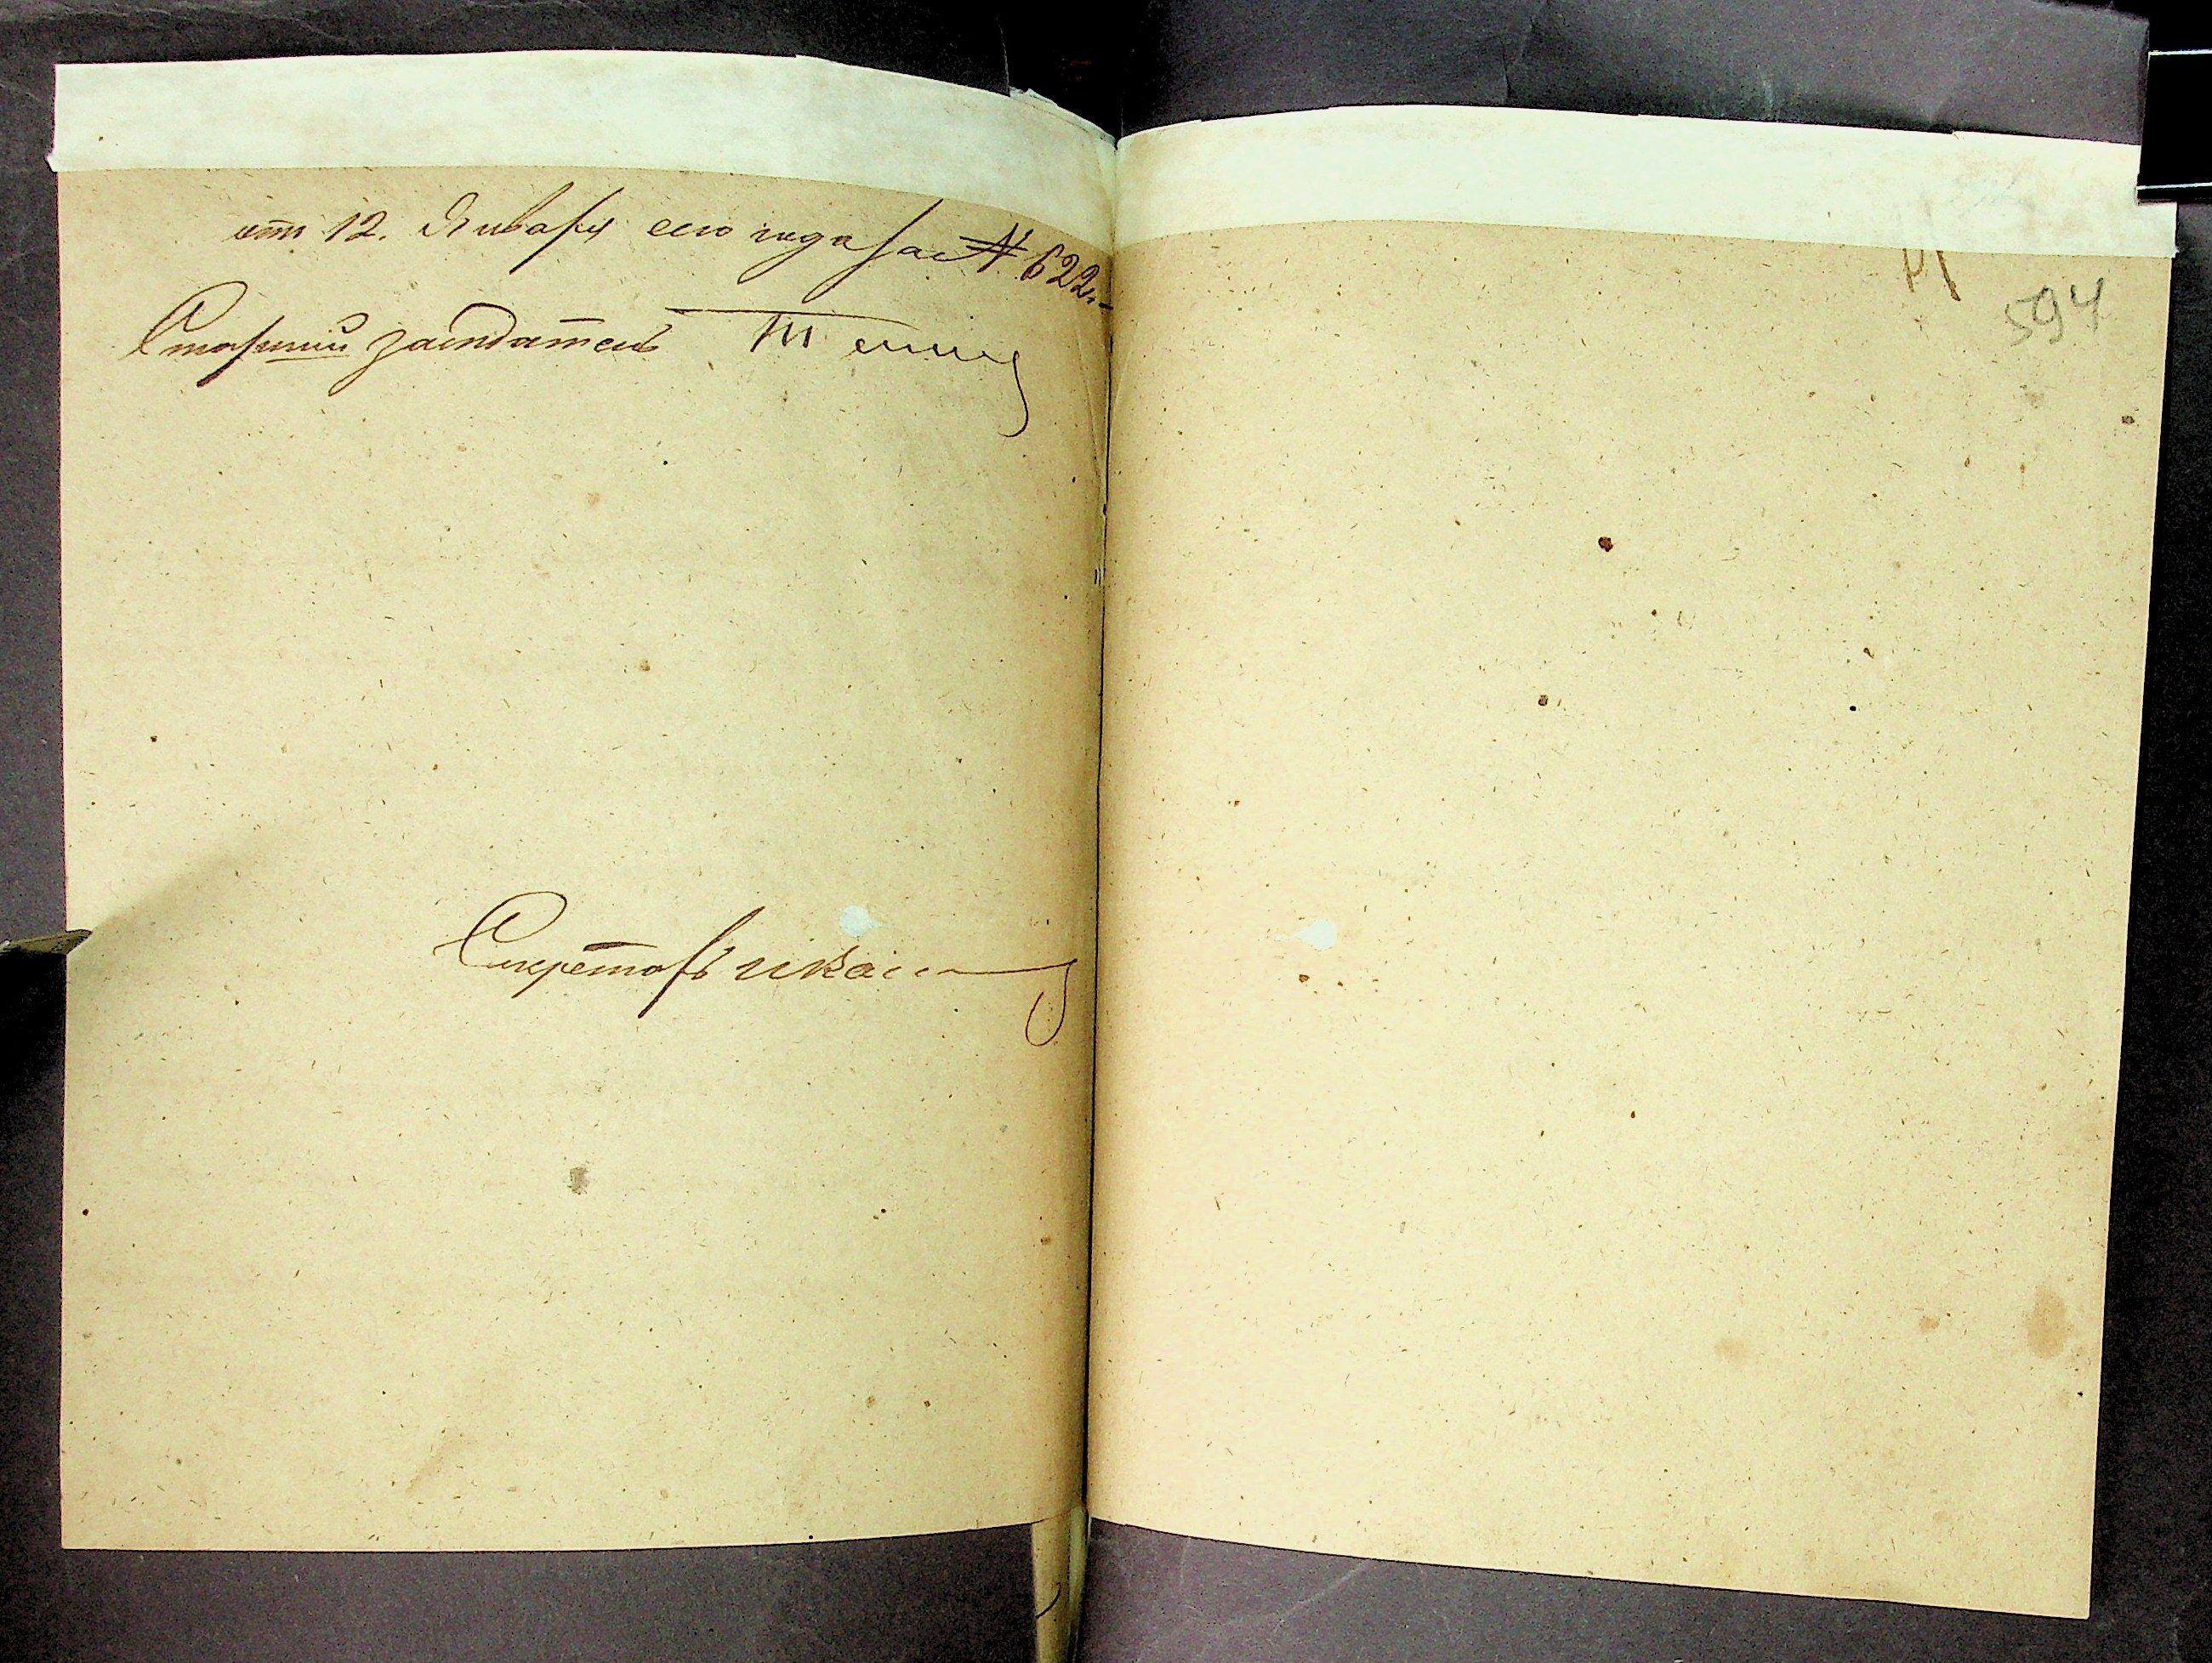 от 12. Января сего года за № 622.
Старший заседатель
Секретарь
594